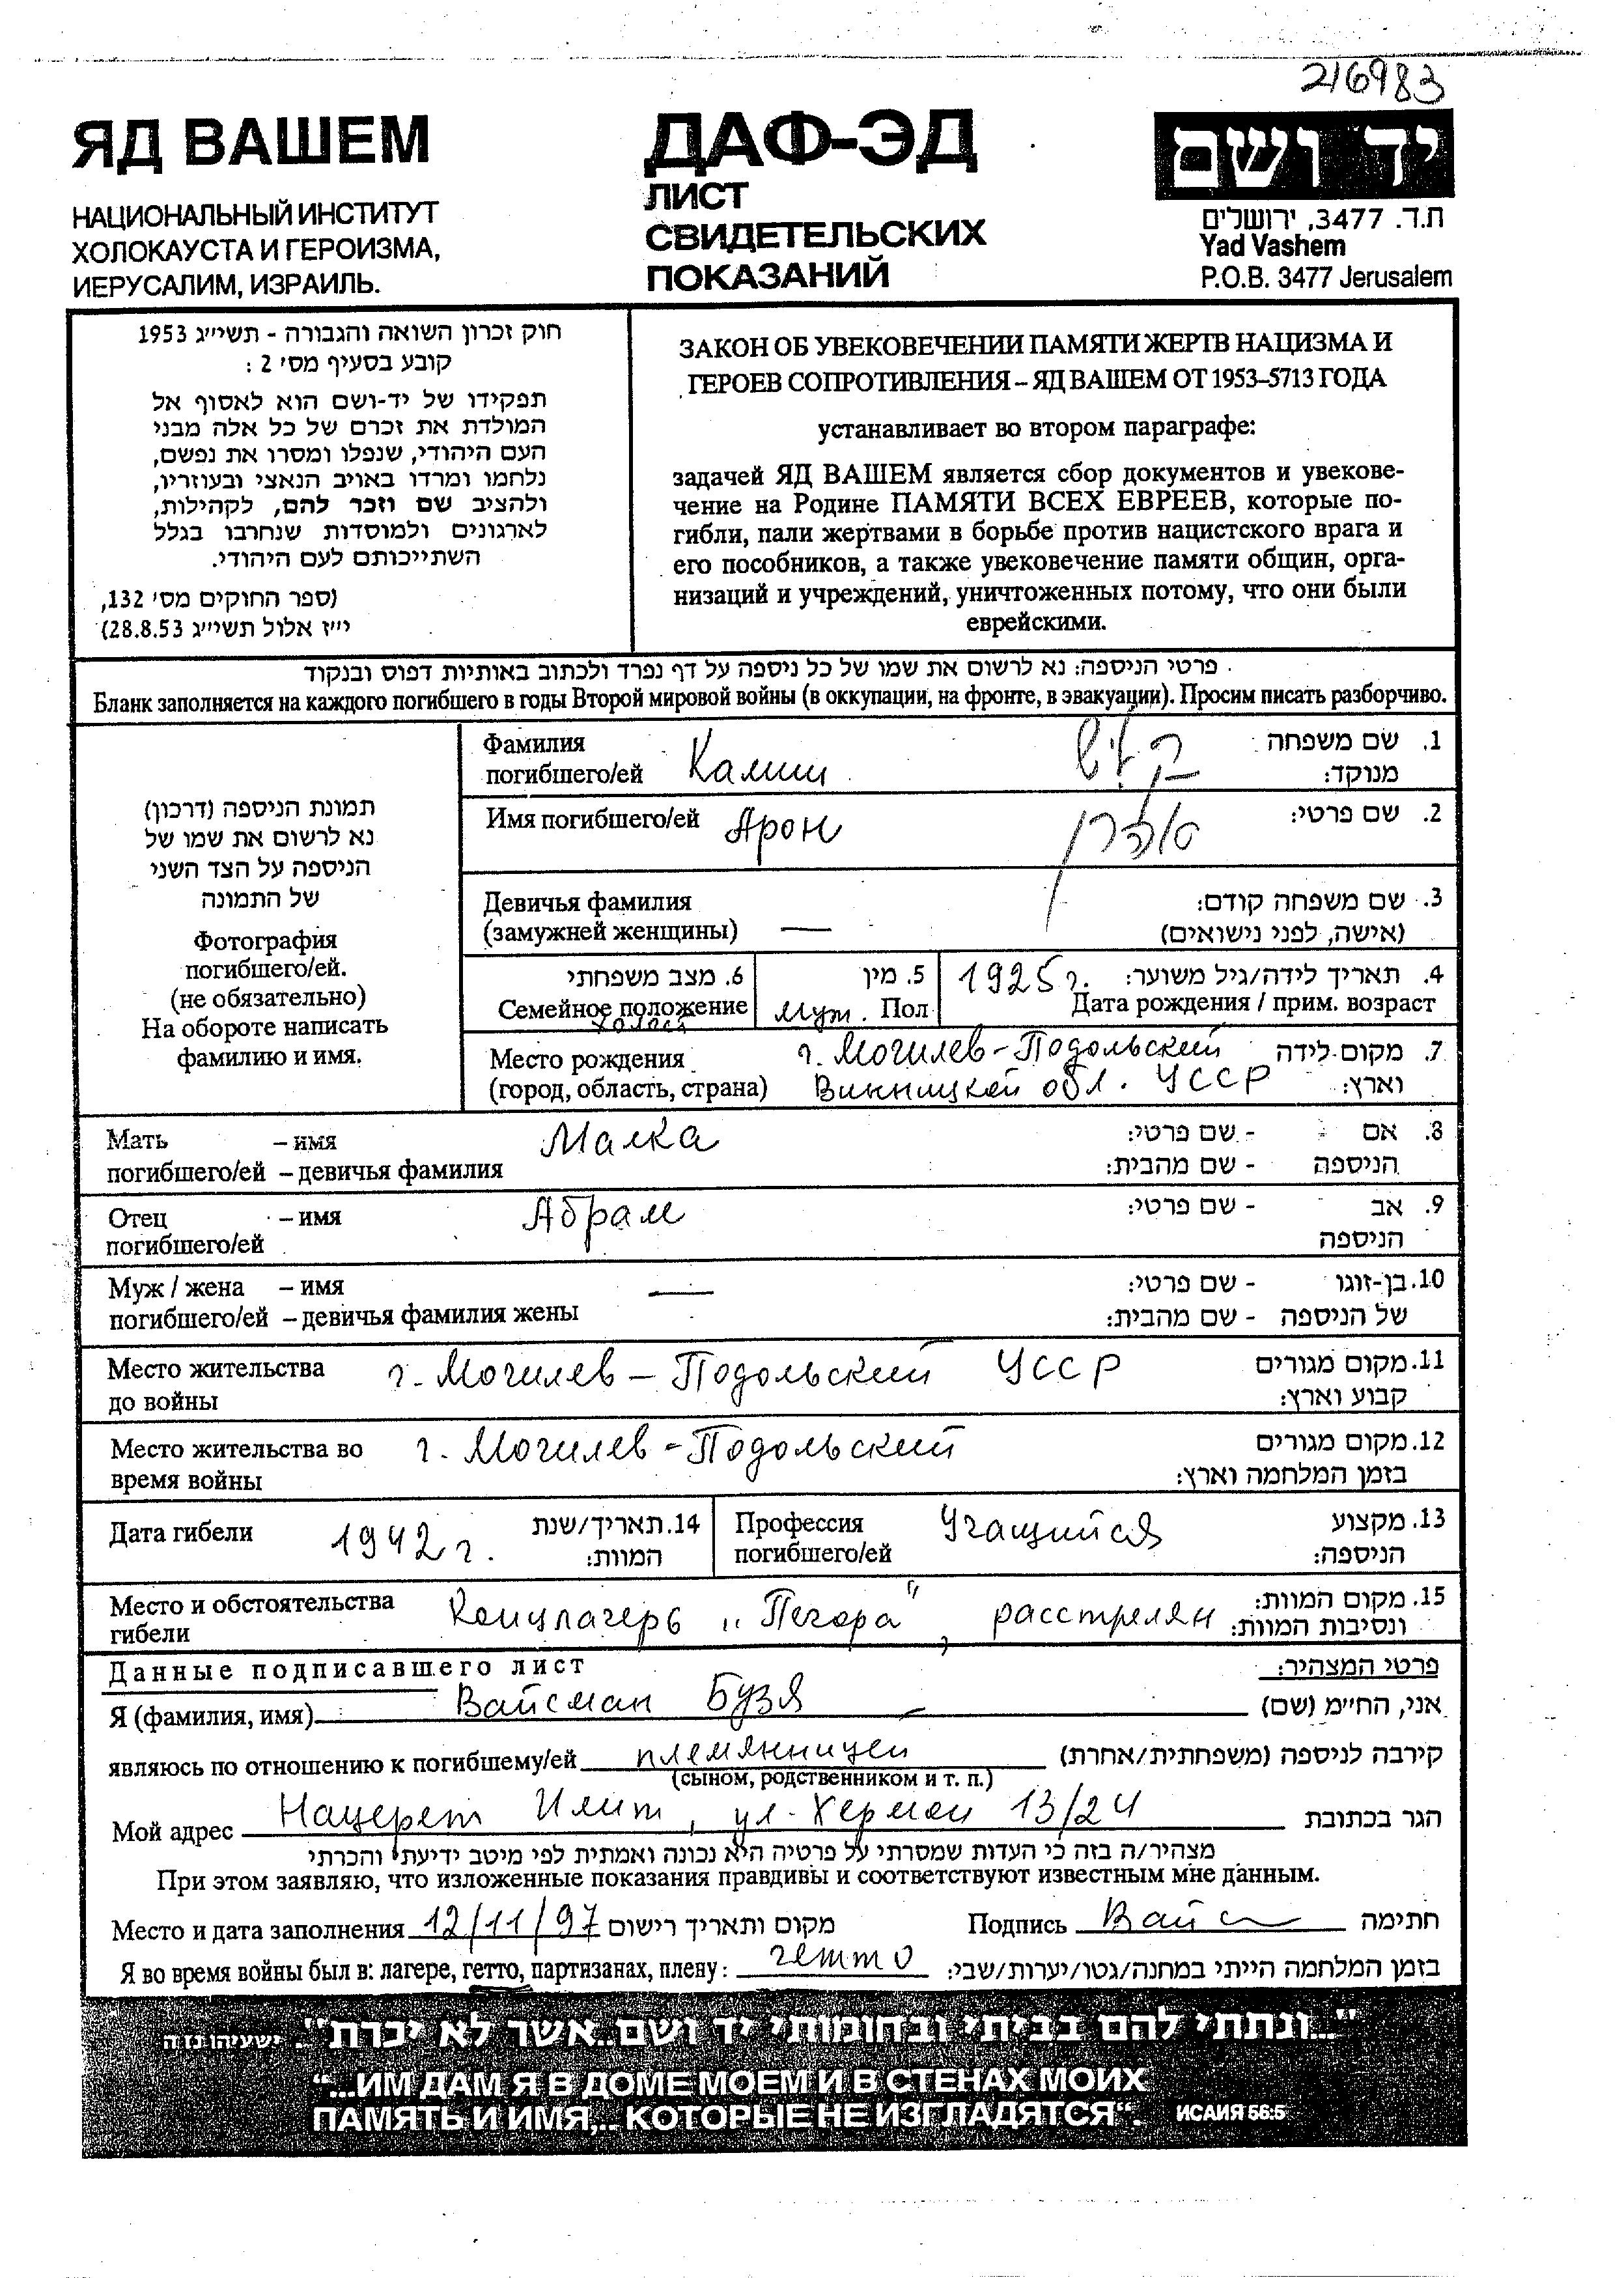 216983
ЯД ВАШЕМ
НАЦИОНАЛЬНЫЙ ИНСТИТУТ
ХОЛОКАУСТА И ГЕРОИЗМА,
ИЕРУСАЛИМ, ИЗРАИЛЬ.
ДАФ-ЭД
ЛИСТ
СВИДЕТЕЛЬСКИХ
ПОКАЗАНИЙ
יד ושם
ת.ד. 3477, ירושלים
Yad Vashem
P.O.B. 3477 Jerusalem
חוק זכרון השואה והגבורה - תשי״ג 1953
קובע בסעיף מס׳ 2 :
תפקידו של יד-ושם הוא לאסוף אל
המולדת את זכרם של כל אלה מבני
העם היהודי, שנפלו ומסרו את נפשם,
נלחמו ומרדו באויב הנאצי ובעוזריו,
ולהציב שם וזכר להם, לקהילות,
לארגונים ולמוסדות שנחרבו בגלל
השתייכותם לעם היהודי.
(ספר החוקים מס׳ 132,
י״ז אלול תשי״ג 28.8.53)
ЗАКОН ОБ УВЕКОВЕЧЕНИИ ПАМЯТИ ЖЕРТВ НАЦИЗМА И
ГЕРОЕВ СОПРОТИВЛЕНИЯ – ЯД ВАШЕМ ОТ 1953–5713 ГОДА
устанавливает во втором параграфе:
задачей ЯД ВАШЕМ является сбор документов и увекове-
чение на Родине ПАМЯТИ ВСЕХ ЕВРЕЕВ, которые по-
гибли, пали жертвами в борьбе против нацистского врага и
его пособников, а также увековечение памяти общин, орга-
низаций и учреждений, уничтоженных потому, что они были
еврейскими.
פרטי הניספה: נא לרשום את שמו של כל ניספה על דף נפרד ולכתוב באותיות דפוס ובנקוד
Бланк заполняется на каждого погибшего в годы Второй мировой войны (в оккупации, на фронте, в эвакуации). Просим писать разборчиво.
תמונת הניספה (דרכון)
נא לרשום את שמו של
הניספה על הצד השני
של התמונה
Фотография
погибшего/ей.
(не обязательно)
На обороте написать
фамилию и имя.
Фамилия
погибшего/ей Калиш
1. שם משפחה
מנוקד:
Имя погибшего/ей Арон
2. שם פרטי:
Девичья фамилия
(замужней женщины) —
3. שם משפחה קודם:
(אישה, לפני נישואים)
6. מצב משפחתי
Семейное положение
холост
5. מין
муж. Пол
4. תאריך לידה/גיל משוער: 1925 г.
Дата рождения / прим. возраст
Место рождения г. Могилев-Подольский
(город, область, страна) Винницкой обл. УССР
7. מקום לידה
וארץ:
Мать – имя Малка
погибшего/ей – девичья фамилия
8. אם - שם פרטי:
הניספה - שם מהבית:
Отец – имя Абрам
погибшего/ей
9. אב - שם פרטי:
הניספה
Муж / жена – имя —
погибшего/ей – девичья фамилия жены
10. בן-זוגו - שם פרטי:
של הניספה - שם מהבית:
Место жительства г. Могилев-Подольский УССР
до войны
11. מקום מגורים
קבוע וארץ:
Место жительства во г. Могилев-Подольский
время войны
12. מקום מגורים
בזמן המלחמה וארץ:
Дата гибели 1942 г.
14. תאריך/שנת
המוות:
Профессия Учащийся
погибшего/ей
13. מקצוע
הניספה:
Место и обстоятельства Концлагерь „Печора“, расстрелян
гибели
15. מקום המוות:
ונסיבות המוות:
Данные подписавшего лист
פרטי המצהיר:
Я (фамилия, имя) Вайсман Бузя אני, החי״מ (שם)
являюсь по отношению к погибшему/ей племянницей קירבה לניספה (משפחתית/אחרת)
(сыном, родственником и т. п.)
Мой адрес Нацерет Илит, ул. Хермон 13/24 הגר בכתובת
מצהיר/ה בזה כי העדות שמסרתי על פרטיה היא נכונה ואמתית לפי מיטב ידיעתי והכרתי
При этом заявляю, что изложенные показания правдивы и соответствуют известным мне данным.
Место и дата заполнения 12/11/97 מקום ותאריך רישום Подпись חתימה
Я во время войны был в: лагере, гетто, партизанах, плену: гетто בזמן המלחמה הייתי במחנה/גטו/יערות/שבי:
"...ונתתי להם בביתי ובחומותי יד ושם...אשר לא יכרת". ישעיהו נו ה
“...ИМ ДАМ Я В ДОМЕ МОЕМ И В СТЕНАХ МОИХ
ПАМЯТЬ И ИМЯ,... КОТОРЫЕ НЕ ИЗГЛАДЯТСЯ“. ИСАИЯ 56:5